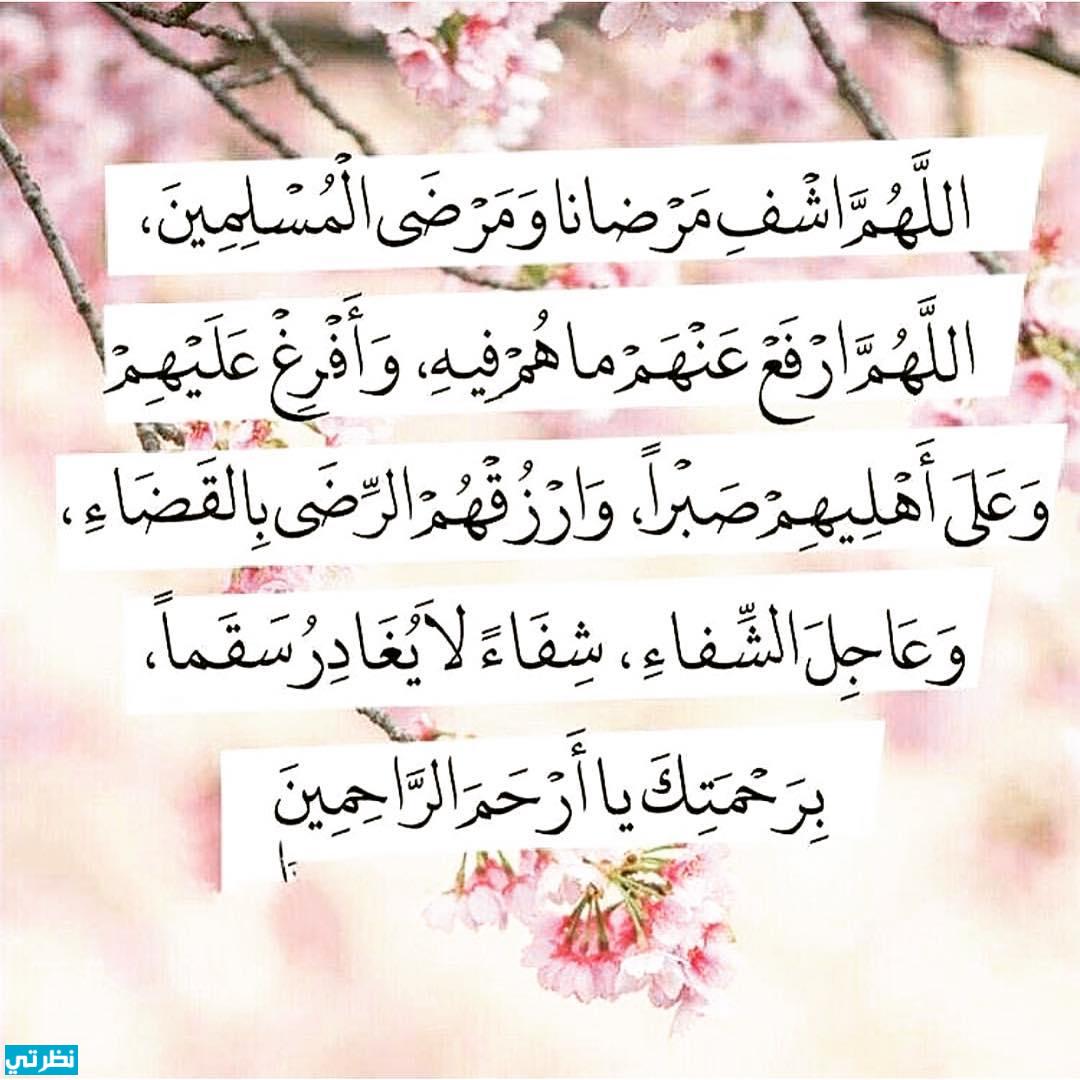 اللَّهُمَّ اشْفِ مَرْضانا وَمَرْضَى الْمُسْلِمِينَ،
اللَّهُمَّ ارْفَعْ عَنْهَمْ ما هُمْ فِيهِ، وَأَفْرِغْ عَلَيْهِمْ
وَعَلَى أَهْلِيهِمْ صَبْراً، وَارْزُقْهُمْ الرِّضَى بِالقَضَاءِ،
وَعَاجِلَ الشِّفاءِ، شِفَاءً لاَ يُغَادِرُ سَقَماً،
بِرَحْمَتِكَ يا أَرْحَمَ الرَّاحِمِينَ
نظرتي